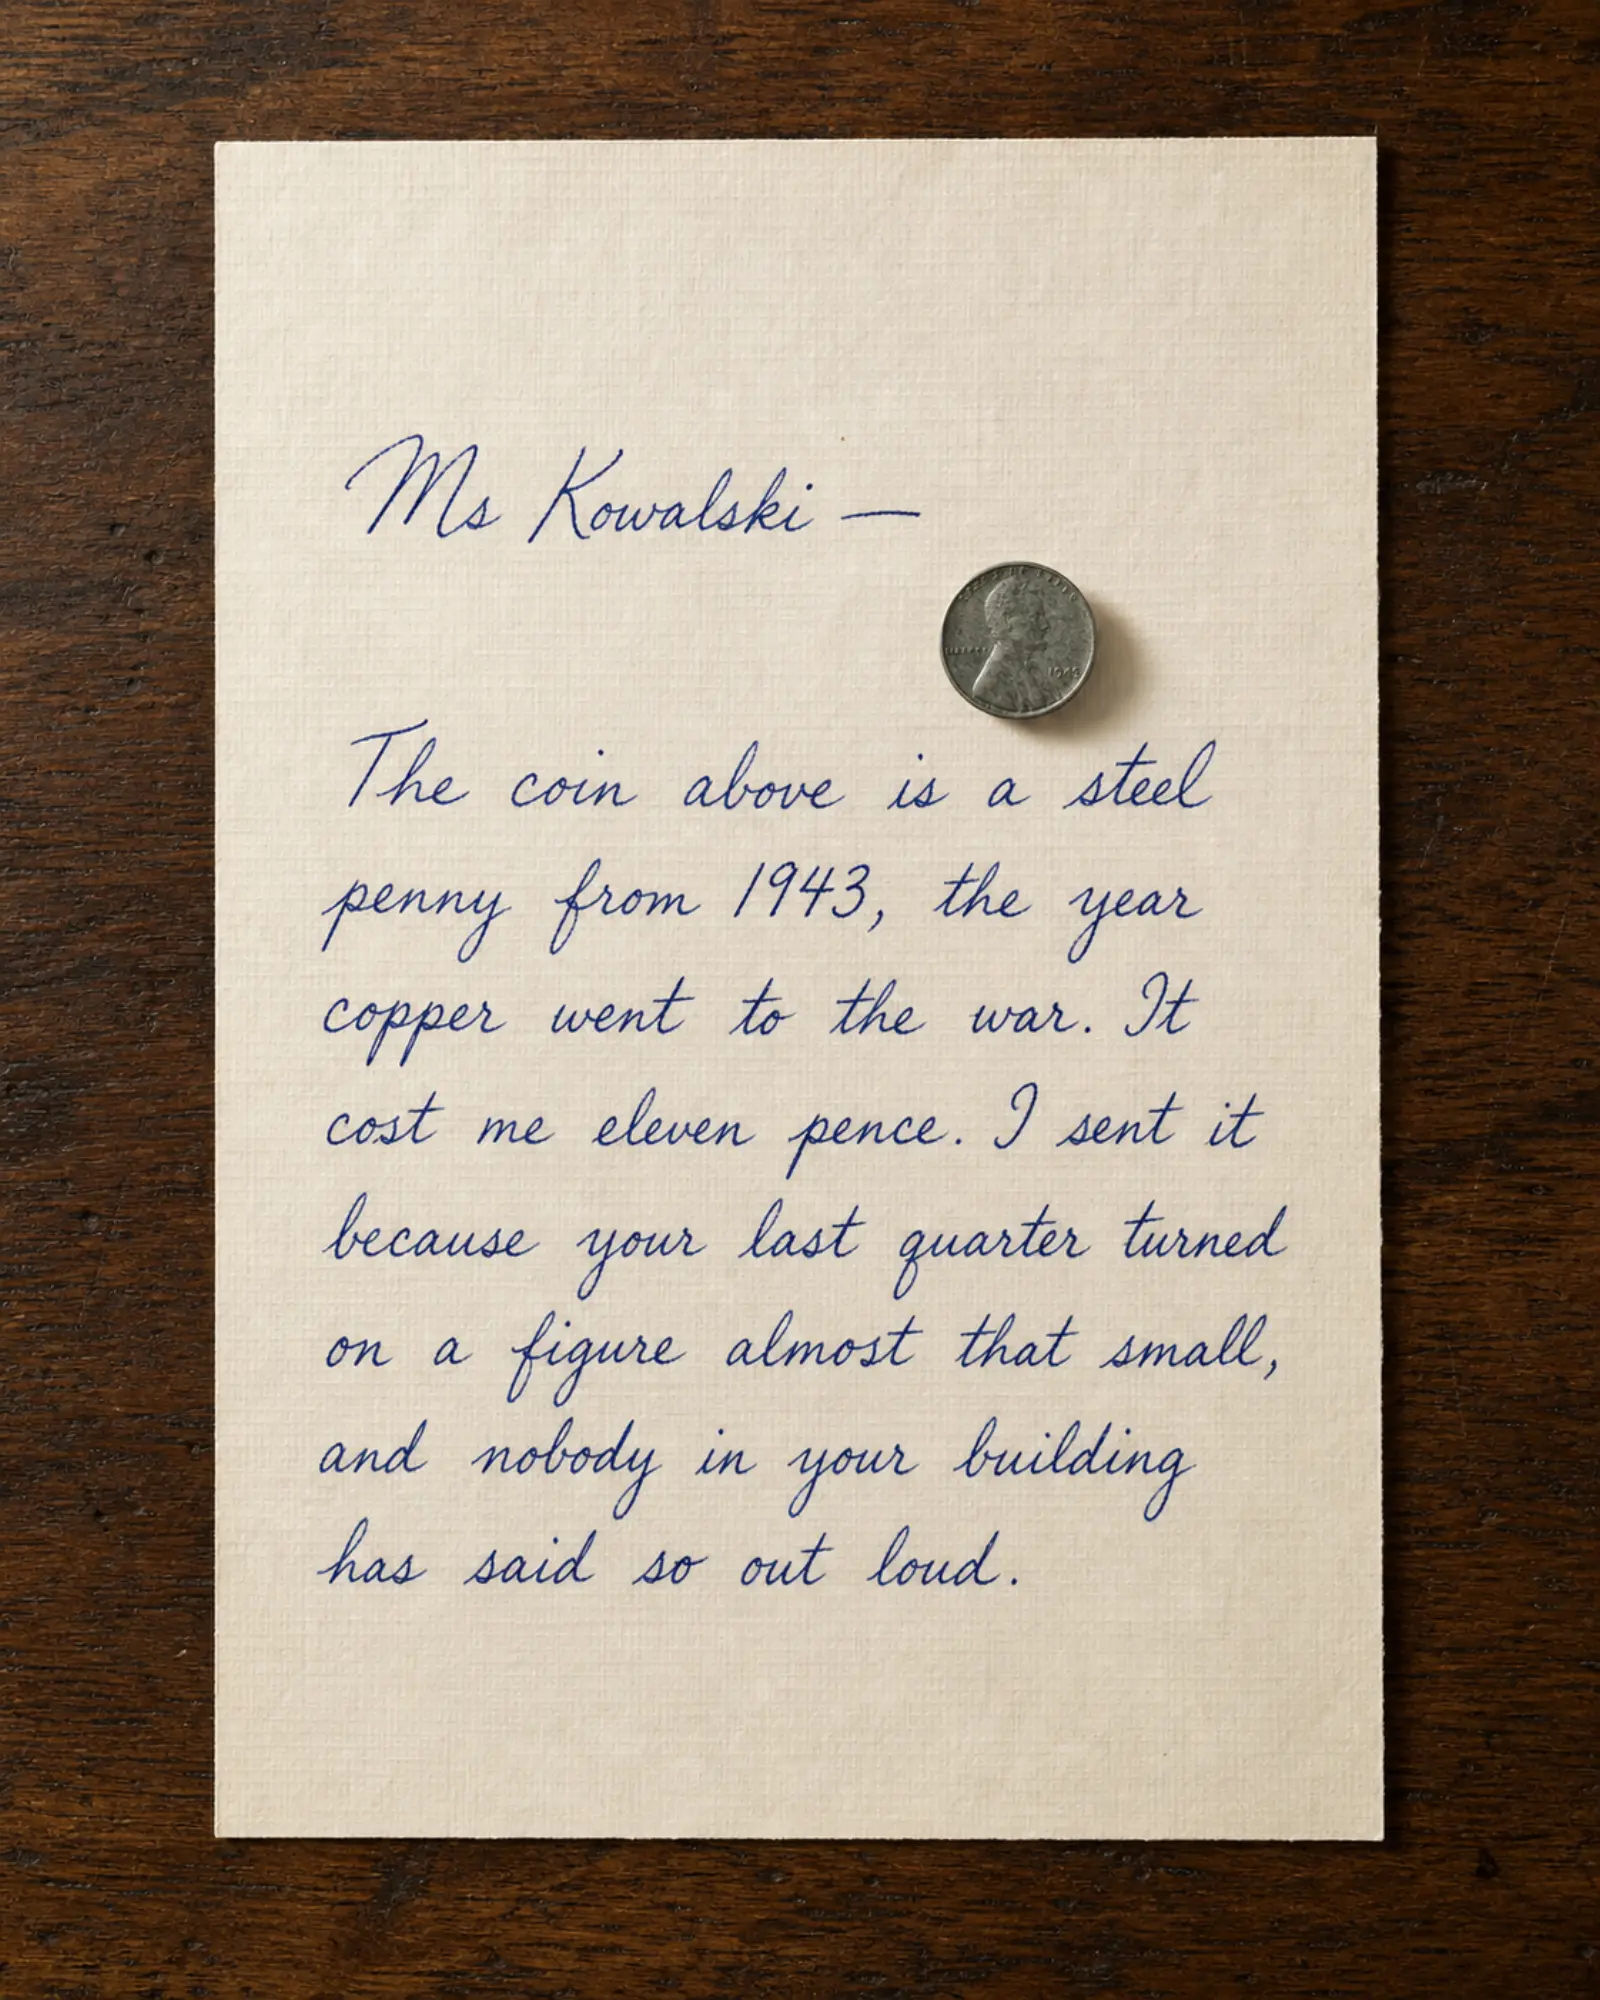 Ms Kowalski —
LIBERTY
1943
The coin above is a steel
penny from 1943, the year
copper went to the war. It
cost me eleven pence. I sent it
because your last quarter turned
on a figure almost that small,
and nobody in your building
has said so out loud.